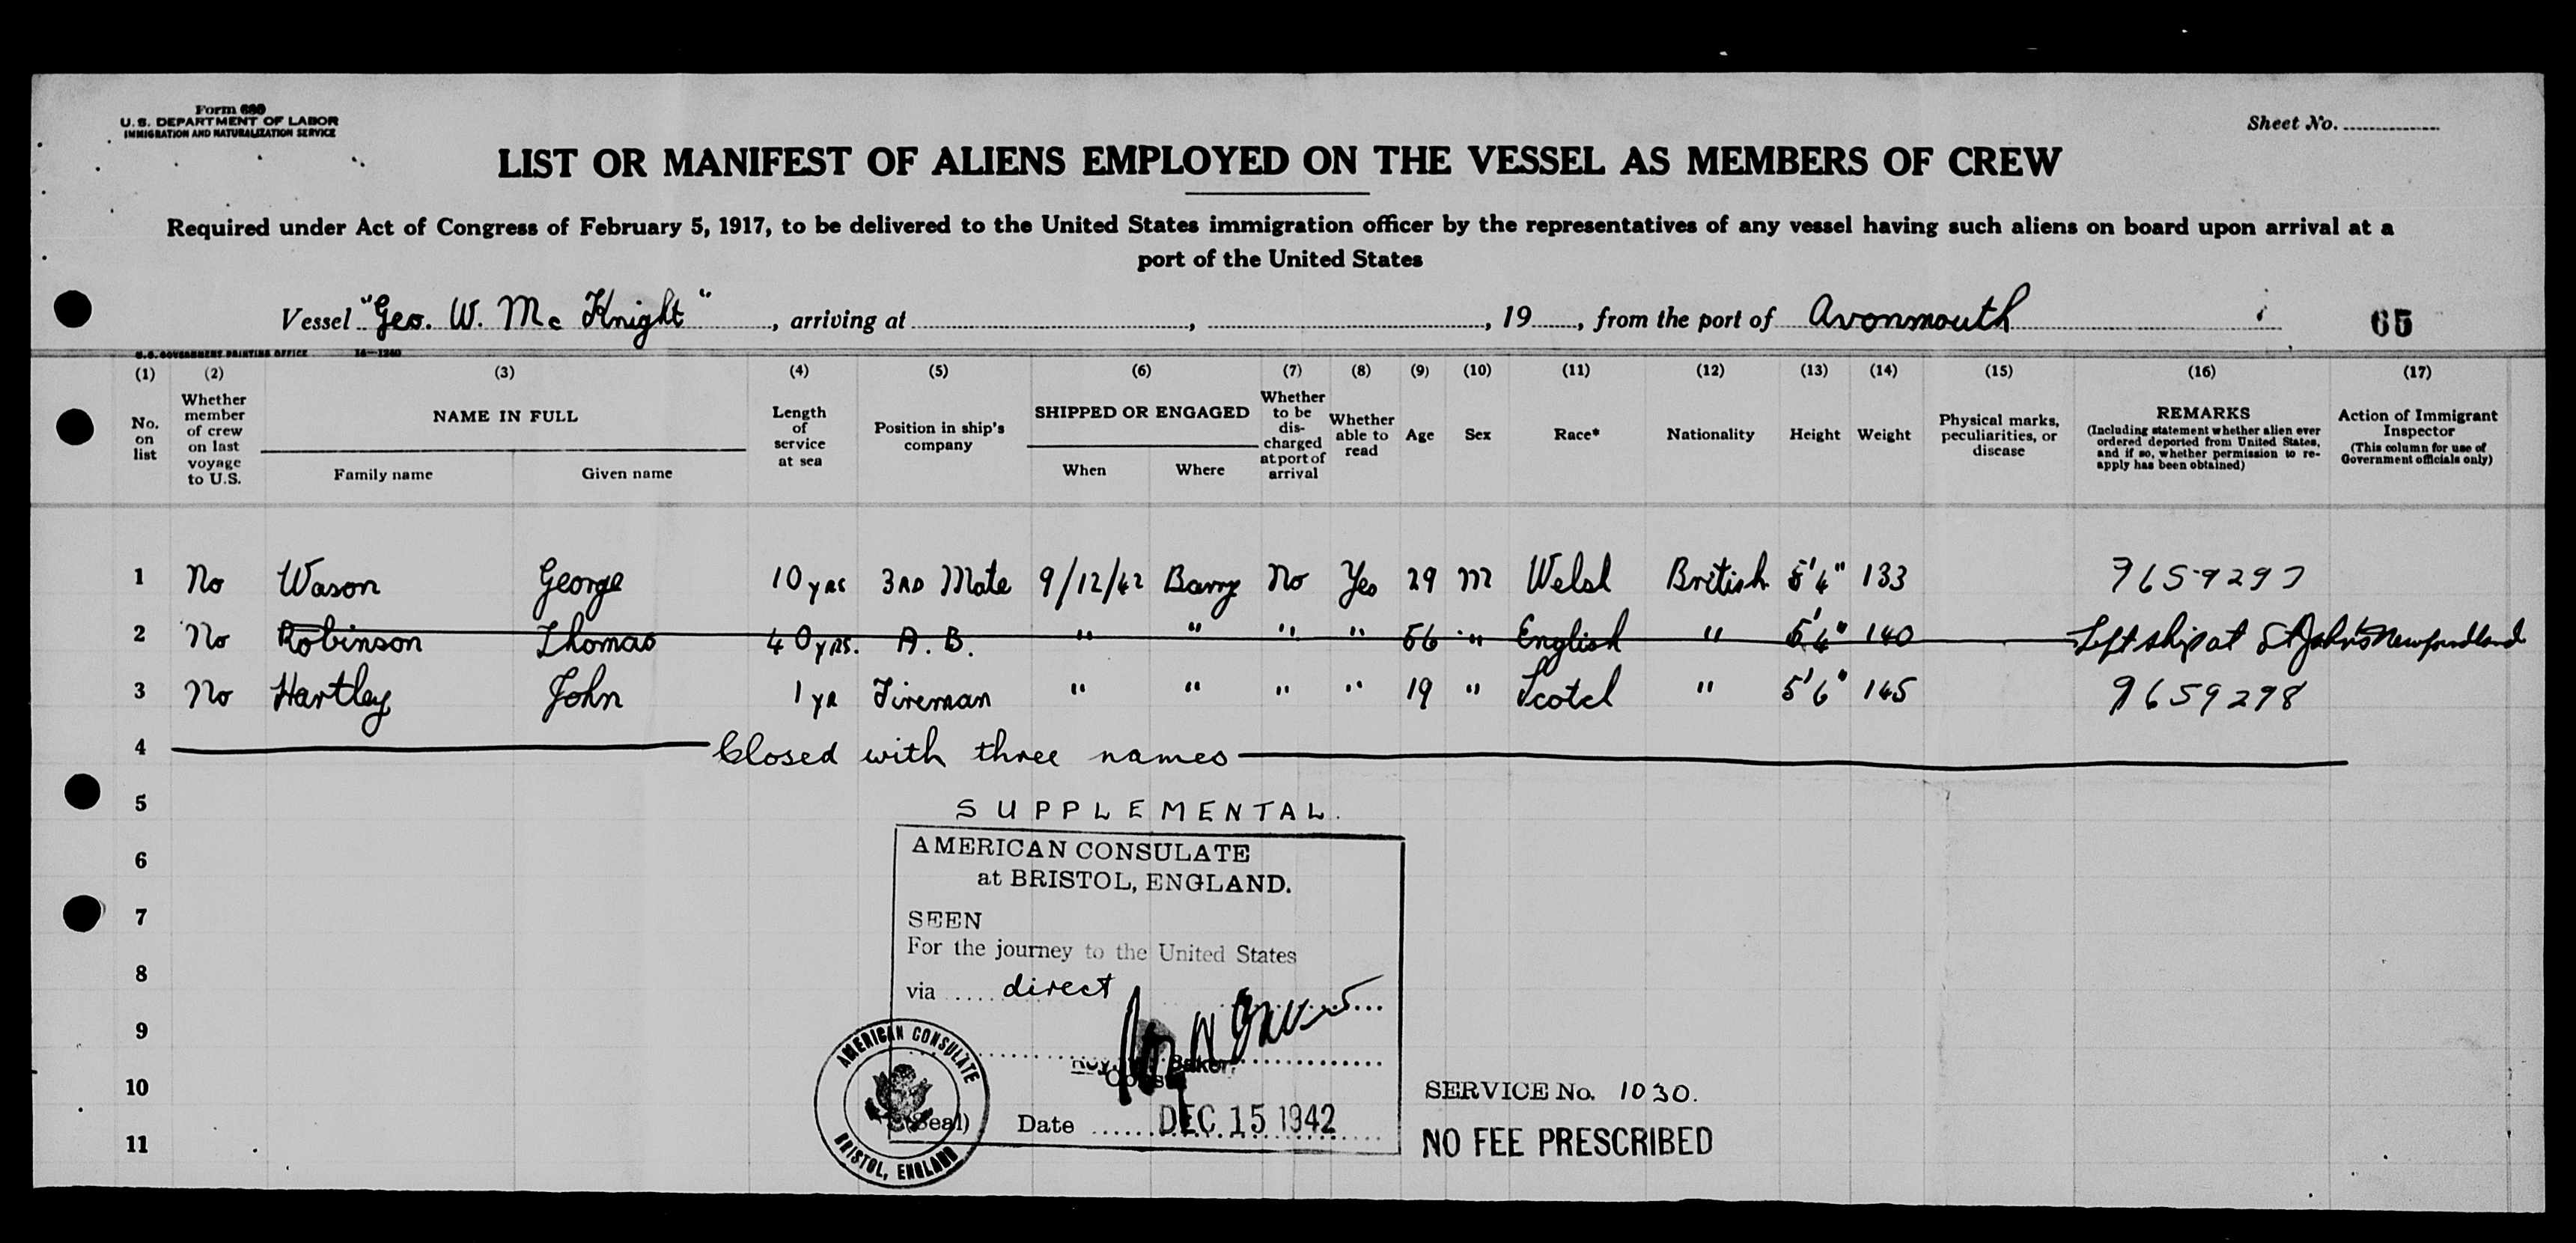 Form 680
U. S. DEPARTMENT OF LABOR
IMMIGRATION AND NATURALIZATION SERVICE
Sheet No.
LIST OR MANIFEST OF ALIENS EMPLOYED ON THE VESSEL AS MEMBERS OF CREW
Required under Act of Congress of February 5, 1917, to be delivered to the United States immigration officer by the representatives of any vessel having such aliens on board upon arrival at a
port of the United States
Vessel "Geo. W. Mc Knight", arriving at , , 19 , from the port of Avonmouth 65
U.S. GOVERNMENT PRINTING OFFICE 16—1240
(1) (2) (3) (4) (5) (6) (7) (8) (9) (10) (11) (12) (13) (14) (15) (16) (17)
No. on list
Whether member of crew on last voyage to U.S.
NAME IN FULL
Family name Given name
Length of service at sea
Position in ship's company
SHIPPED OR ENGAGED
When Where
Whether to be discharged at port of arrival
Whether able to read
Age
Sex
Race*
Nationality
Height
Weight
Physical marks, peculiarities, or disease
REMARKS
(Including statement whether alien ever ordered deported from United States, and if so, whether permission to reapply has been obtained)
Action of Immigrant Inspector
(This column for use of Government officials only)
1 No Wason George 10 yrs 3RD Mate 9/12/42 Barry No Yes 29 M Welsh British 5'4" 133 9659297
2 No Robinson Thomas 40 yrs. A.B. " " " " 56 " English " 5'4" 140 Left ship at St John's Newfoundland
3 No Hartley John 1 yr Fireman " " " " 19 " Scotch " 5'6" 145 9659298
4 Closed with three names
5 SUPPLEMENTAL.
AMERICAN CONSULATE
6 at BRISTOL, ENGLAND.
7 SEEN
For the journey to the United States
8 via direct
9
10
11
AMERICAN CONSULATE
BRISTOL, ENGLAND
(Seal) Date DEC 15 1942
SERVICE No. 1030.
NO FEE PRESCRIBED